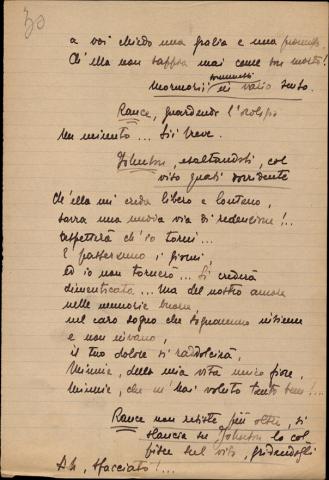 30
a voi chiedo una grazia e una promessa
Ch'ella non sappia mai come son morto!
Mormorii sommessi in vario senso.
Rance, guardando l'orologio
Un minuto... Sii breve.
Johnson, esaltandosi, col
viso quasi sorridente
Ch'ella mi creda libero e lontano,
sovra una nuova via di redenzione!..
Aspetterà ch'io torni...
E passeranno i giorni,
Ed io non tornerò... Si crederà
dimenticata... Ma del nostro amore
nelle memorie buone,
nel caro sogno che sognammo insieme
e non invano,
il tuo dolore si raddolcirà,
Minnie, della mia vita unico fiore,
Minnie, che m'hai voluto tanto bene!...
Rance non resiste più oltre, si
slancia su Johnson lo col-
pisce sul viso, gridandogli
Ah, sfacciato!...